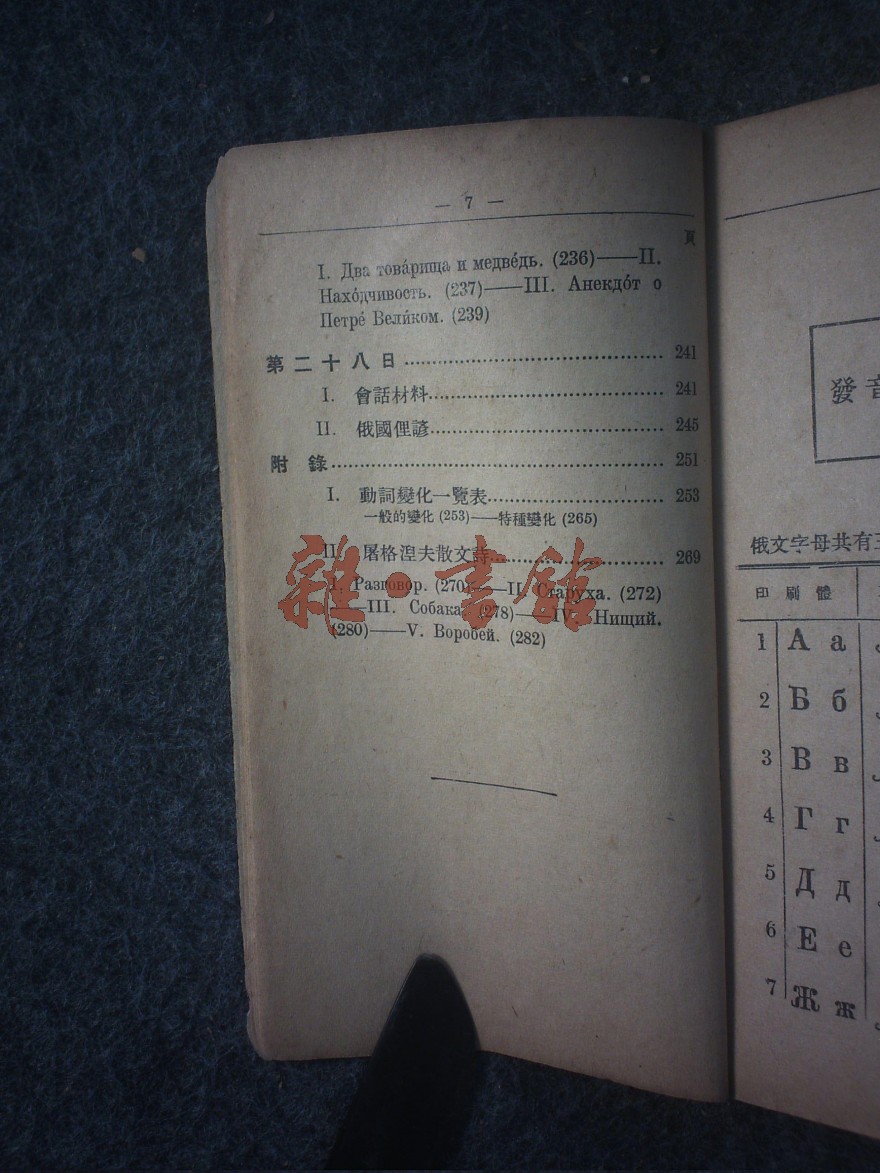 — 7 —
頁
I. Два това́рища и медве́дь. (236)——II.
Нахо́дчивость. (237)——III. Анекдо́т о
Петре́ Вели́ком. (239)
第二十八日 241
I. 會話材料 241
II. 俄國俚諺 245
附錄 251
I. 動詞變化一覽表 253
一般的變化 (253)——特種變化 (265)
II. 屠格涅夫散文詩 269
I. Разговор. (270)——II. Старуха. (272)
——III. Собака. (278)——IV. Нищий.
(280)——V. Воробей. (282)
雜·書館
發音
俄文字母共有三
印刷體
1 А а
2 Б б
3 В в
4 Г г
5 Д д
6 Е е
7 Ж ж